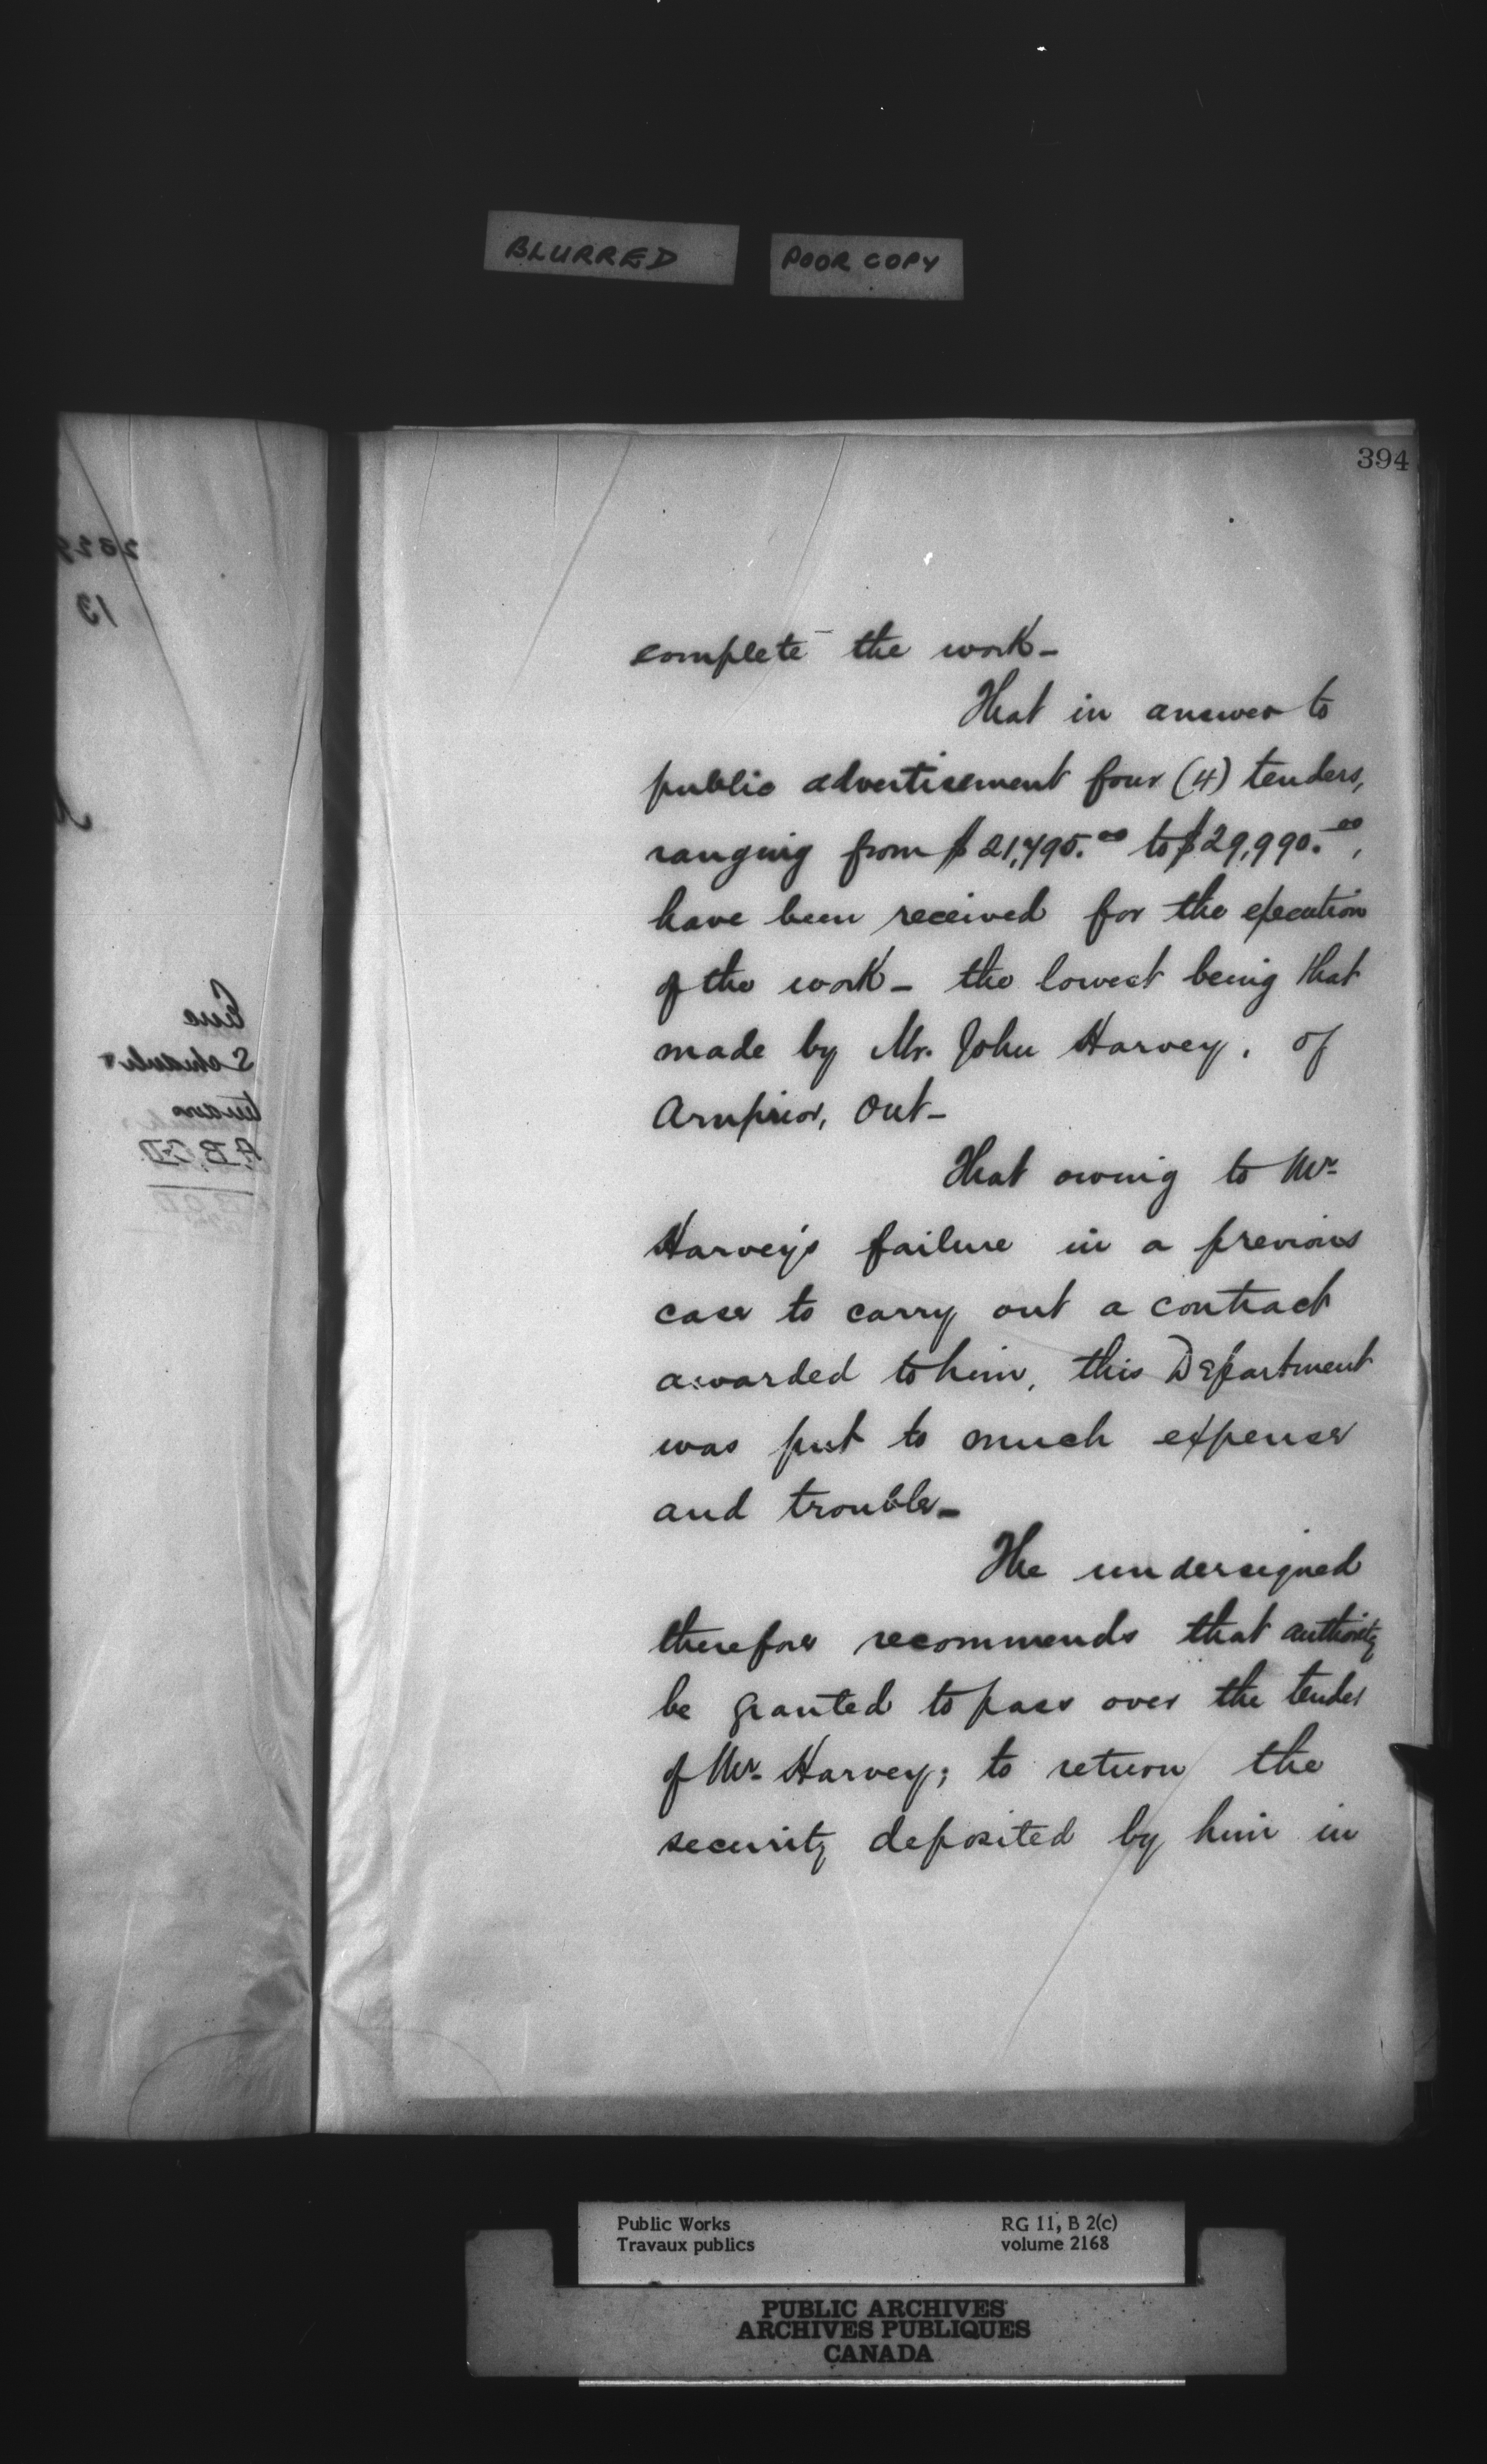 BLURRED
POOR COPY
394
complete the work-
That in answer to
public advertisement four (4) tenders,
ranging from $21,490.00 to $29,990.00,
have been received for the execution
of the work - the lowest being that
made by Mr. John Harvey, of
Arnprior, Ont-
That owing to Mr
Harvey's failure in a previous
case to carry out a contract
awarded to him, this Department
was put to much expense
and trouble-
The undersigned
therefore recommends that authority
be granted to pass over the tender
of Mr Harvey; to return the
security deposited by him in
Public Works
Travaux publics
RG 11, B 2(c)
volume 2168
PUBLIC ARCHIVES
ARCHIVES PUBLIQUES
CANADA